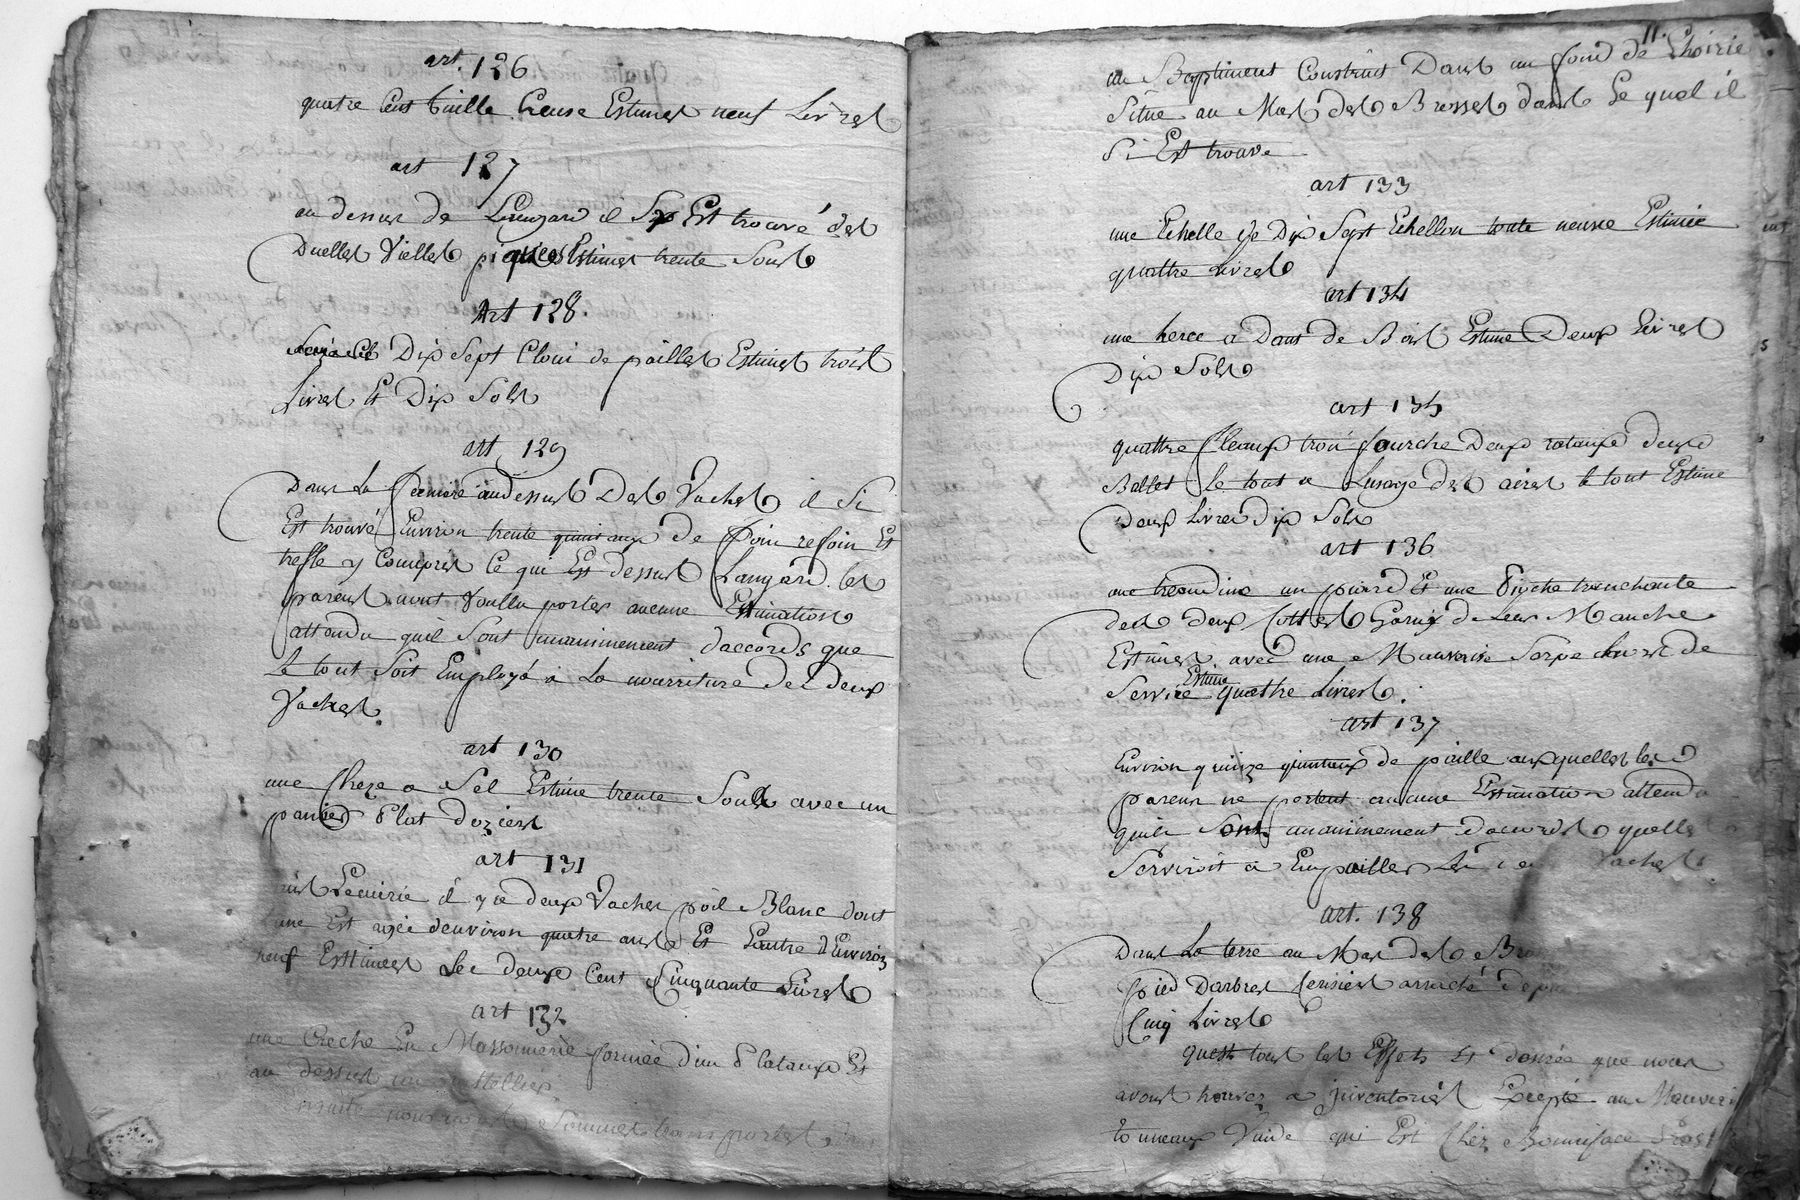 art. 126
quatre Cent tuille Creuse Estimes neuf Livres
art 127
au dessus de il Sy Est trouvé des
Duelles Vielles piquées Estimes trente Sous
Art 128
Dix Sept Cloui de pailles Estimes trois
Livres Et Dix Sols
art 129
Dans La feniere audessus Des Vaches il Si
Est trouvé Environ trente quintaux de foin refoin Et
treffle y Compris Ce qui Est dessus Langard. les
parens nont Voullu porter aucune Estimation
attendu quil Sont unanimement daccords que
Le tout Soit Employé a La nourriture des deux
Vaches.
art 130
une Cheze a Sel Estimé trente Sous avec un
panier Plat doziers
art 131
Lecuirie il y a deux Vaches poil Blanc dont
Lune Est agée denviron quatre ans Et Lautre dEnviron
neuf Esttimées Les deux Cent Cinquante Livres
art 132
une Creche En Massonnerie formée dun Plataux Et
au dessus un rattellier
Ensuite nous Sommes transportes
11.
un Baptiment Construit Dans un fond de Lhoirie
Situé au Mas des Brosses dans Le quel il
Si Est trouvé
art 133
une Echelle de Dix Sept Echellon toute neuve Estimée
quattre Livres
art 134
une herce a Dans de Bois Estimé Deux Livres
Dix Sols
art 135
quattre fleaux trois fourche Deux rataux deux
Balles Le tout a Lusage des aires le tout Estimé
Deux Livres dix Sols
art 136
une un Et une Pioche tranchante
des deux Cottes Garnis de Leur Manche
Estimes avec une Mauvaise Serpe hors de
Service Estimé quattre Livres.
art 137
Environ quinze quintaux de paille auxquelles les
parens ne portent aucune Estimation attendu
quils Sont unanimement daccords quelles
Serviroit a Empailler Les Vaches
art. 138
Dans La terre au Mas des
pied Darbres Cerisiers arraché
Cinq Livres
quest tous les Effets et denrée que nous
avons trouvez a jnventories Excepté un Mauvais
tonneaux Vuide qui Est Chez Boniface